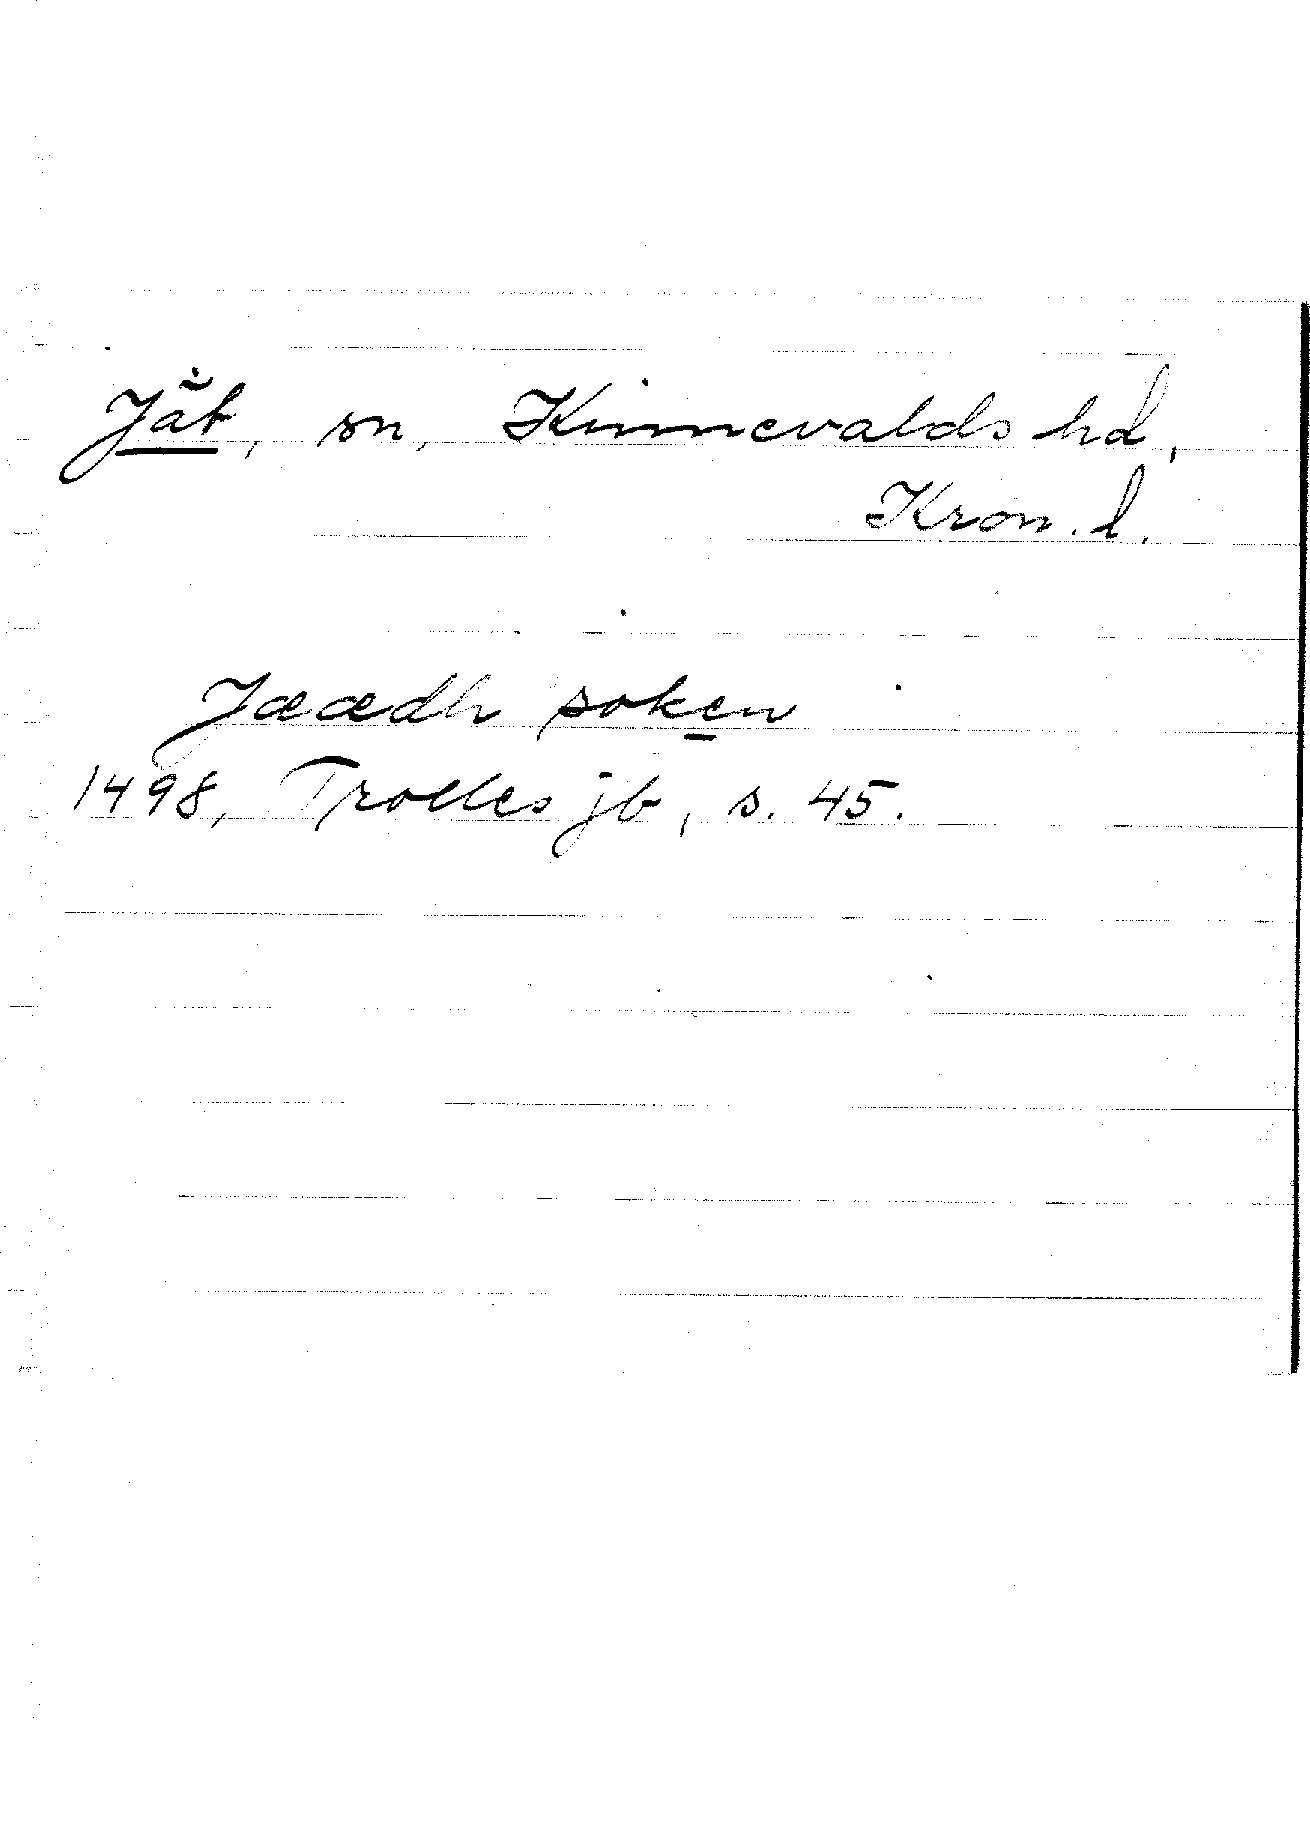 Jät, sn, Kinnevalds hd,
Kron. l.
Jæædh soken
1498, Trolles jb, s. 45.